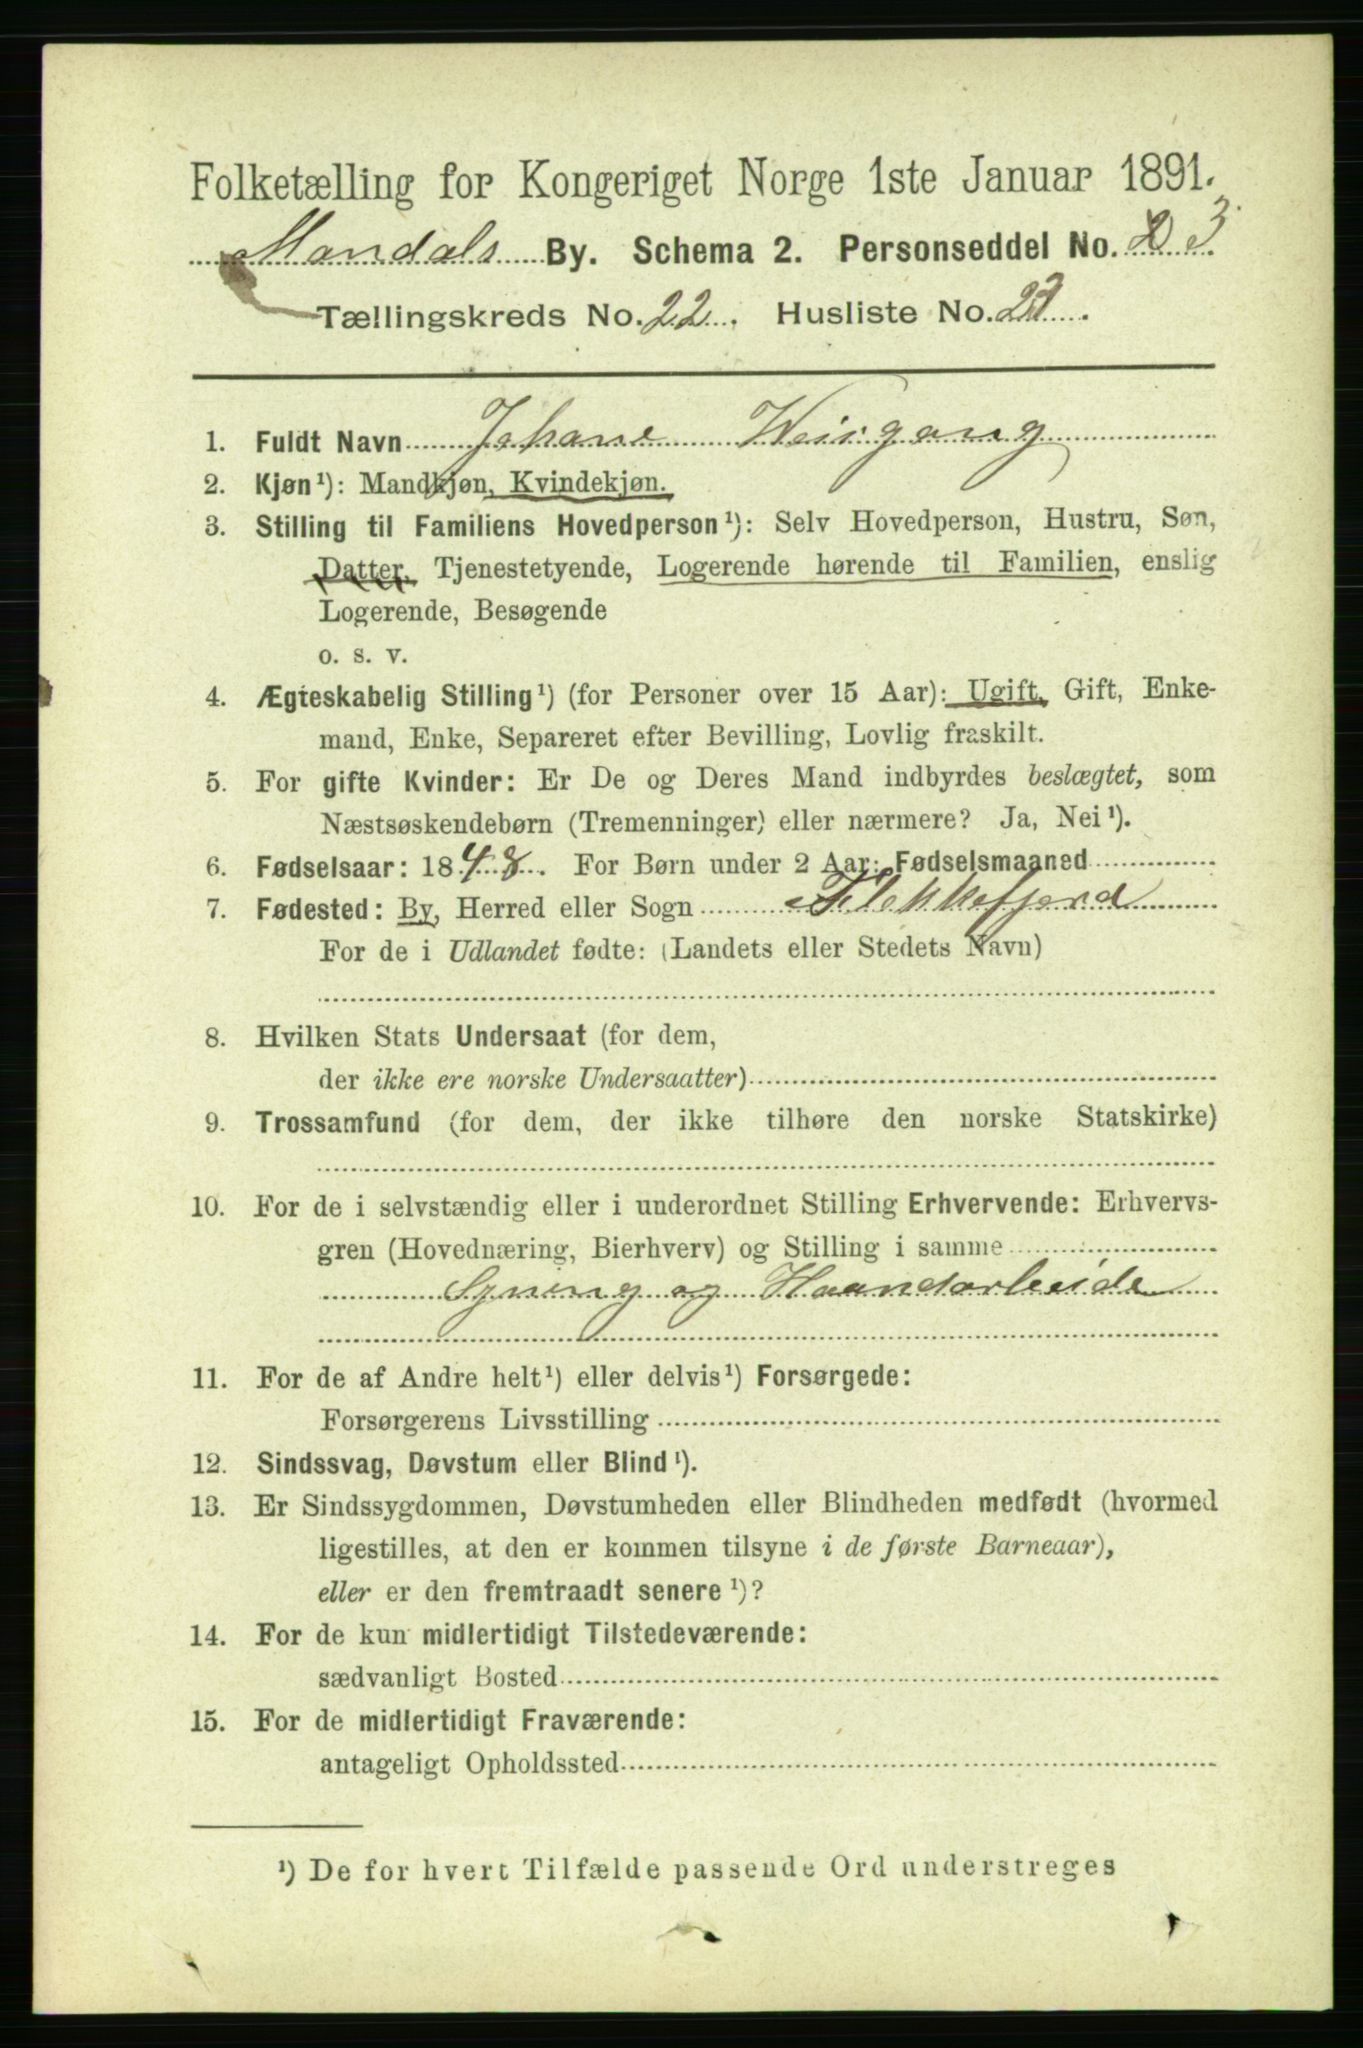 Folketælling for Kongeriget Norge 1ste Januar 1891.
Mandals By. Schema 2. Personseddel No. 3
Tællingskreds No. 22. Husliste No.
1. Fuldt Navn Johane Weisgang
2. Kjøn¹): Mandkjøn, Kvindekjøn.
3. Stilling til Familiens Hovedperson¹): Selv Hovedperson, Hustru, Søn,
Datter, Tjenestetyende, Logerende hørende til Familien, enslig
Logerende, Besøgende
o. s. v.
4. Ægteskabelig Stilling¹) (for Personer over 15 Aar): Ugift, Gift, Enke-
mand, Enke, Separeret efter Bevilling, Lovlig fraskilt.
5. For gifte Kvinder: Er De og Deres Mand indbyrdes beslægtet, som
Næstsøskendebørn (Tremenninger) eller nærmere? Ja, Nei¹).
6. Fødselsaar: 1848. For Børn under 2 Aar: Fødselsmaaned
7. Fødested: By, Herred eller Sogn Flekkefjord
For de i Udlandet fødte: (Landets eller Stedets Navn)
8. Hvilken Stats Undersaat (for dem,
der ikke ere norske Undersaatter)
9. Trossamfund (for dem, der ikke tilhøre den norske Statskirke)
10. For de i selvstændig eller i underordnet Stilling Erhvervende: Erhvervs-
gren (Hovednæring, Bierhverv) og Stilling i samme
Syning og Haandarbeide
11. For de af Andre helt¹) eller delvis¹) Forsørgede:
Forsørgerens Livsstilling
12. Sindssvag, Døvstum eller Blind¹).
13. Er Sindssygdommen, Døvstumheden eller Blindheden medfødt (hvormed
ligestilles, at den er kommen tilsyne i de første Barneaar),
eller er den fremtraadt senere¹)?
14. For de kun midlertidigt Tilstedeværende:
sædvanligt Bosted
15. For de midlertidigt Fraværende:
antageligt Opholdssted
¹) De for hvert Tilfælde passende Ord understreges